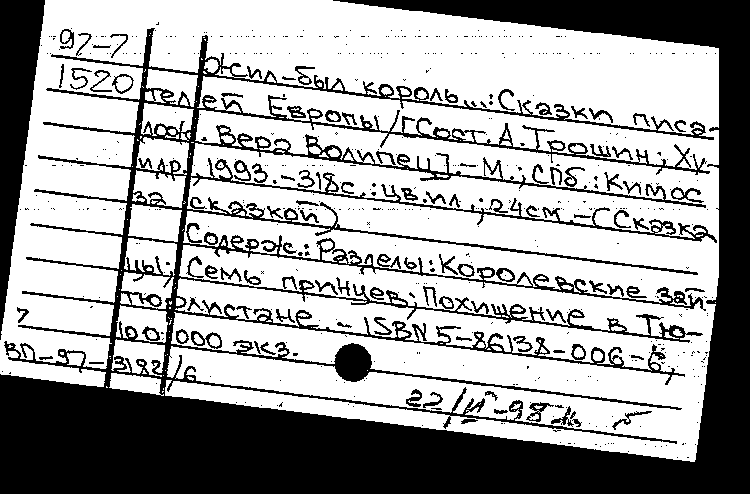 97-7
1520
Жил-был король...: Сказки писа-
телей Европы / [Сост. А. Трошин; Ху-
дож. Вера Волипец]. - М.; СПб.: Кимос
идр., 1993. - 318с.: цв.ил.; 24см. - (Сказка
за сказкой).
Содерж.: Разделы: Королевские зай-
цы; Семь принцев; Похищение в Тю-
тюрлистане. - ISBN 5-86138-006-6,
100.000 экз.
ВП-97-3182/6
22/II-98